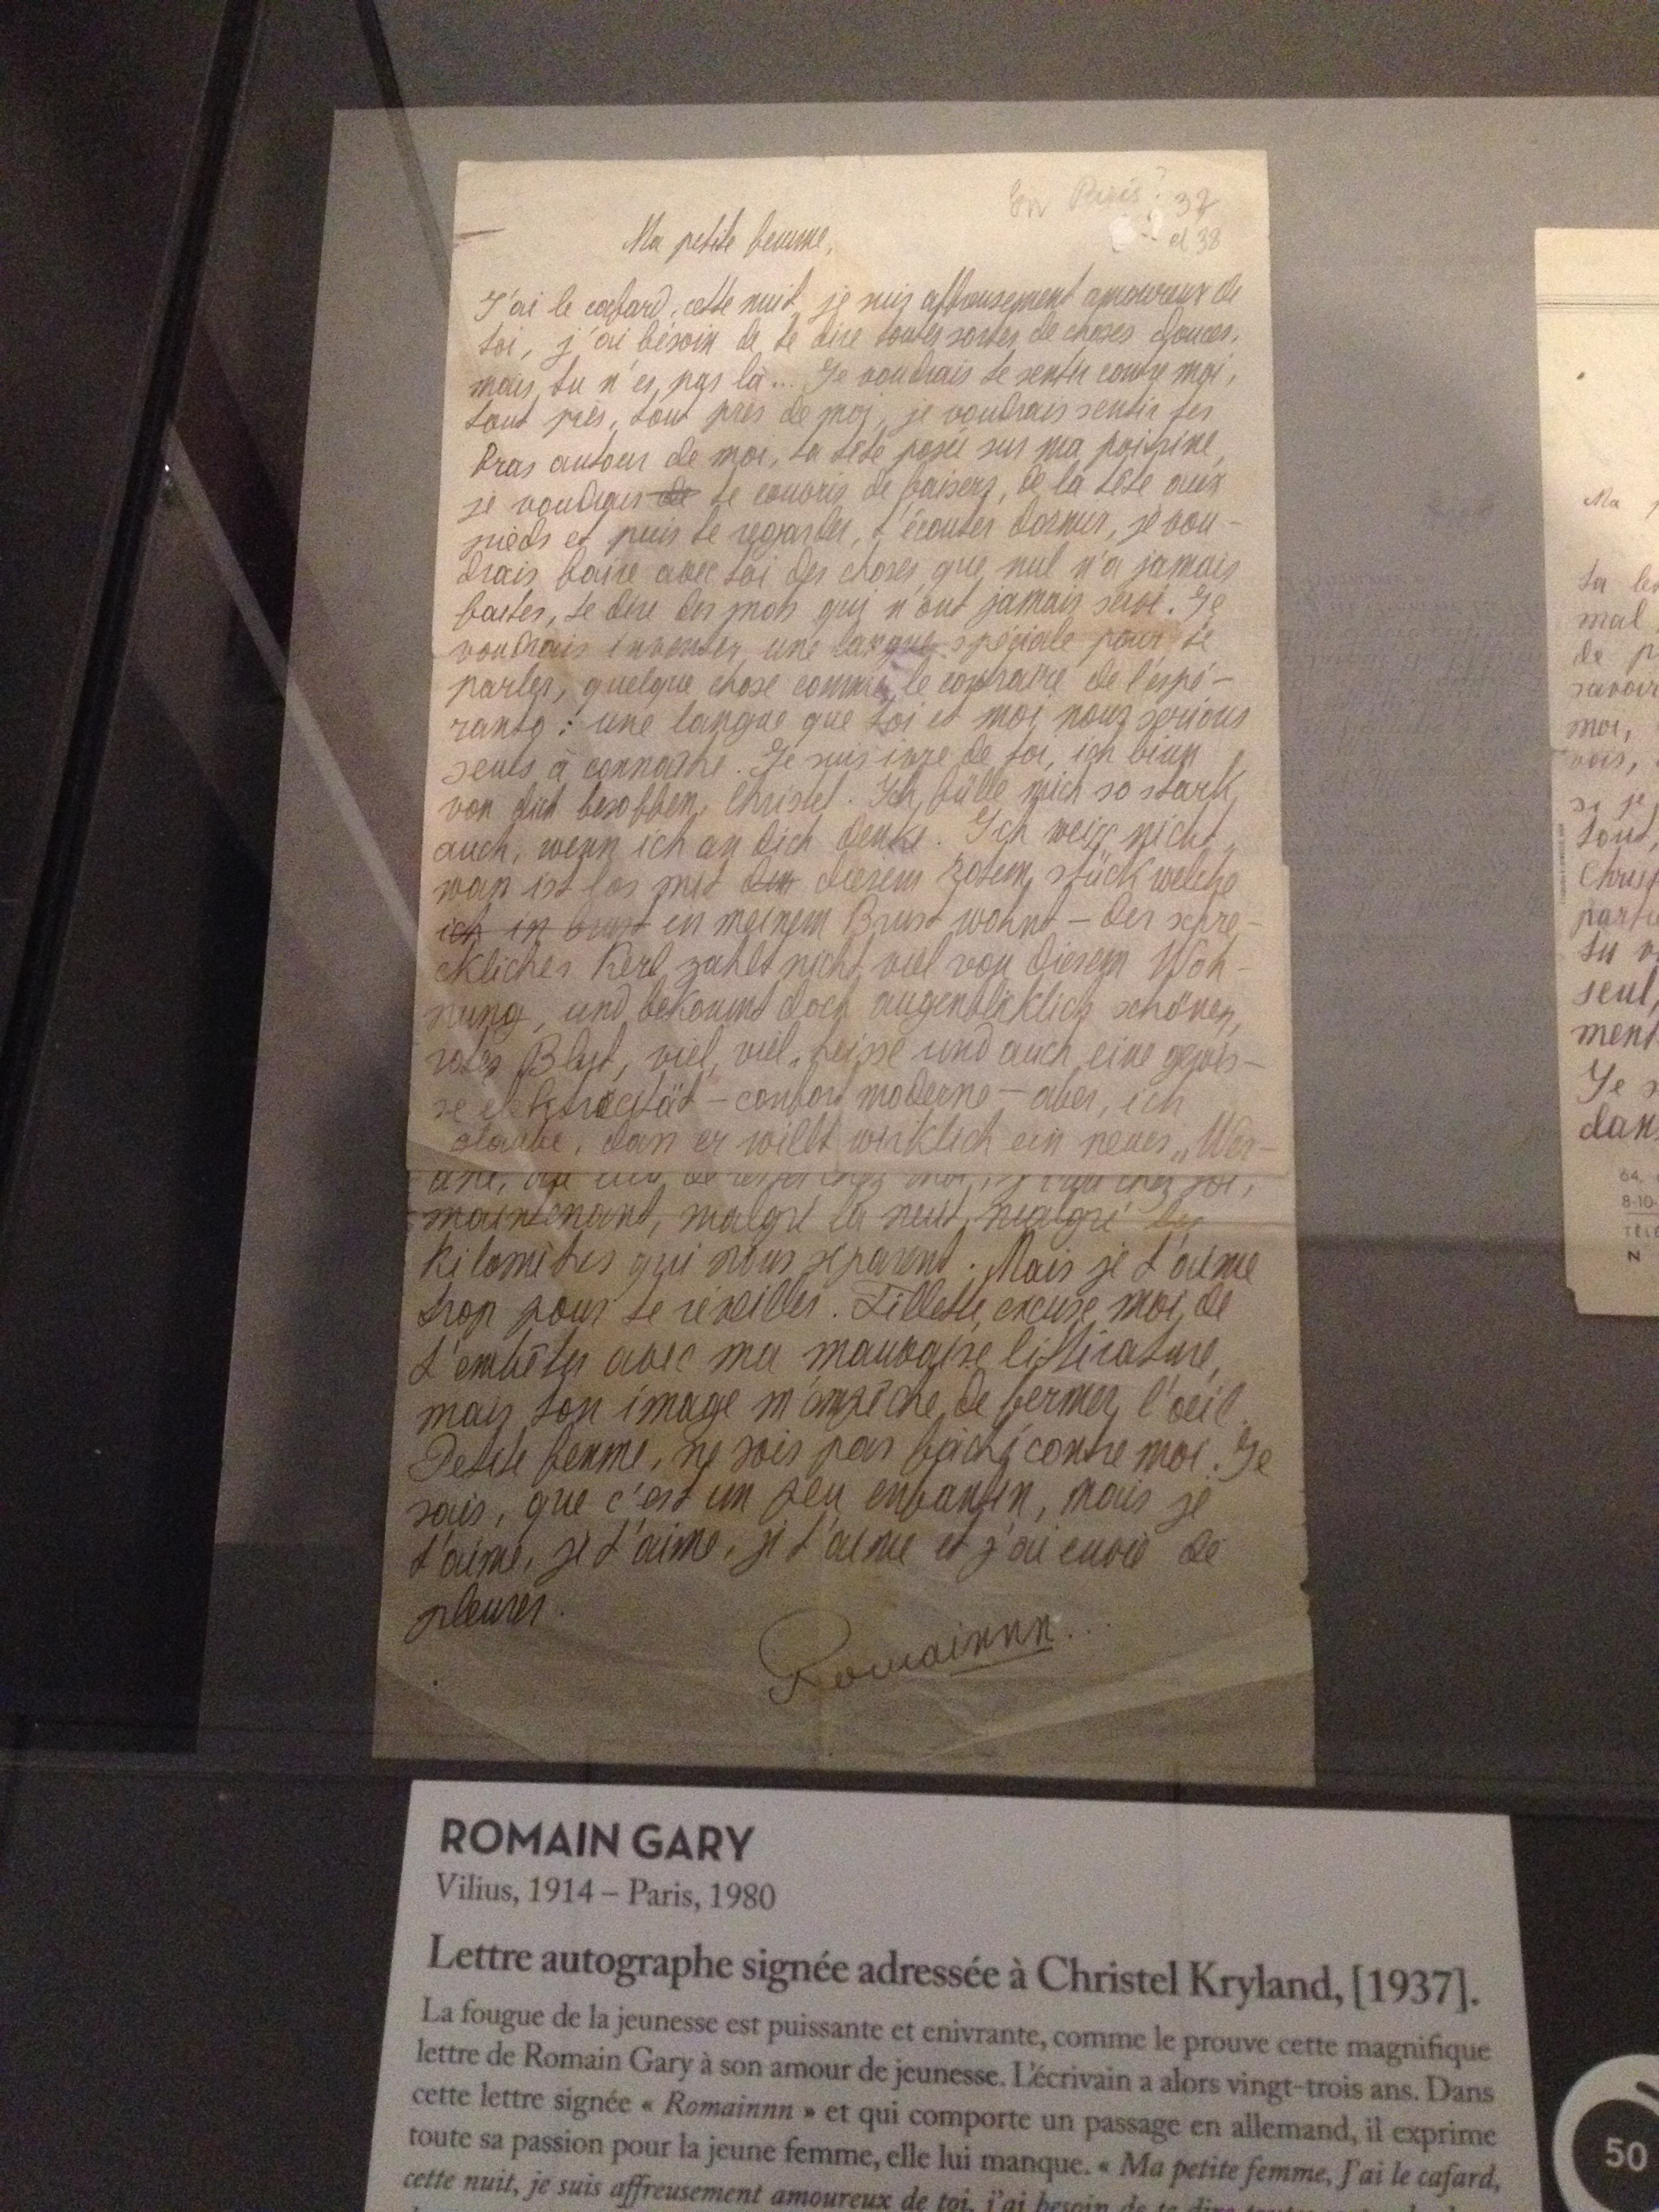 En Paris? 37
et 38
Ma petite femme,
J'ai le cafard, cette nuit, je suis affreusement amoureux de
toi, j'ai bésoin de te dire toutes sortes de choses douces,
mais, tu n'es, pas là... Je voudrais te sentir contre moi,
tout près, tout près de moi, je voudrais sentir tes
bras autour de moi, ta tête posée sur ma poitrine,
je voudrais de te couvrir de baisers, de la tête aux
pieds et puis te regarder, t'écouter dormir, je vou-
drais faire avec toi des choses que nul n'a jamais
faites, te dire des mots qui n'ont jamais servi. Je
voudrais inventer une langue spéciale pour te
parler, quelque chose comme le contraire de l'espé-
ranto: une langue que toi et moi nous serions
seuls à connaitre. Je suis ivre de toi, ich binn
von dich besoffen, Christel. Ich fülle mich so stark
auch, wenn ich an dich denke. Ich weiss nicht
was ist los mit dem diesem rotem stück welche
ich in brust in meinem Brust wohnt – der schre-
cklicher Kerl zahlt nicht viel von diesem Woh-
nung, und bekommt doch augenblicklich schönen,
rotes Blut, viel, viel, heisse und auch eine gewis-
se elektrocität – confort moderne – aber, ich
glaube, dass er willt wirklich ein neues „Woh-
maintenant, malgré la nuit, malgré les
kilomètres qui nous séparent. Mais je t'aime
trop pour te réveiller. Fillette, excuse moi, de
t'embêter avec ma mauvaise littérature,
mais ton image m'empêche de fermer l'oeil.
Petite femme, ne sois pas fâché contre moi. Je
sais, que c'est un peu enfantin, mais je
t'aime, je t'aime, je t'aime et j'ai envie de
pleurer.
Romainnn...
Ma
ta
mal
de
savoir
moi,
vois,
si je
tout,
tu
seul,
ment
Je
dans
64,
8-10-
N
ROMAIN GARY
Vilius, 1914 – Paris, 1980
Lettre autographe signée adressée à Christel Kryland, [1937].
La fougue de la jeunesse est puissante et enivrante, comme le prouve cette magnifique
lettre de Romain Gary à son amour de jeunesse. L'écrivain a alors vingt-trois ans. Dans
cette lettre signée « Romainnn » et qui comporte un passage en allemand, il exprime
toute sa passion pour la jeune femme, elle lui manque. « Ma petite femme, J'ai le cafard,
cette nuit, je suis affreusement amoureux de toi, j'ai besoin de te dire toutes
50